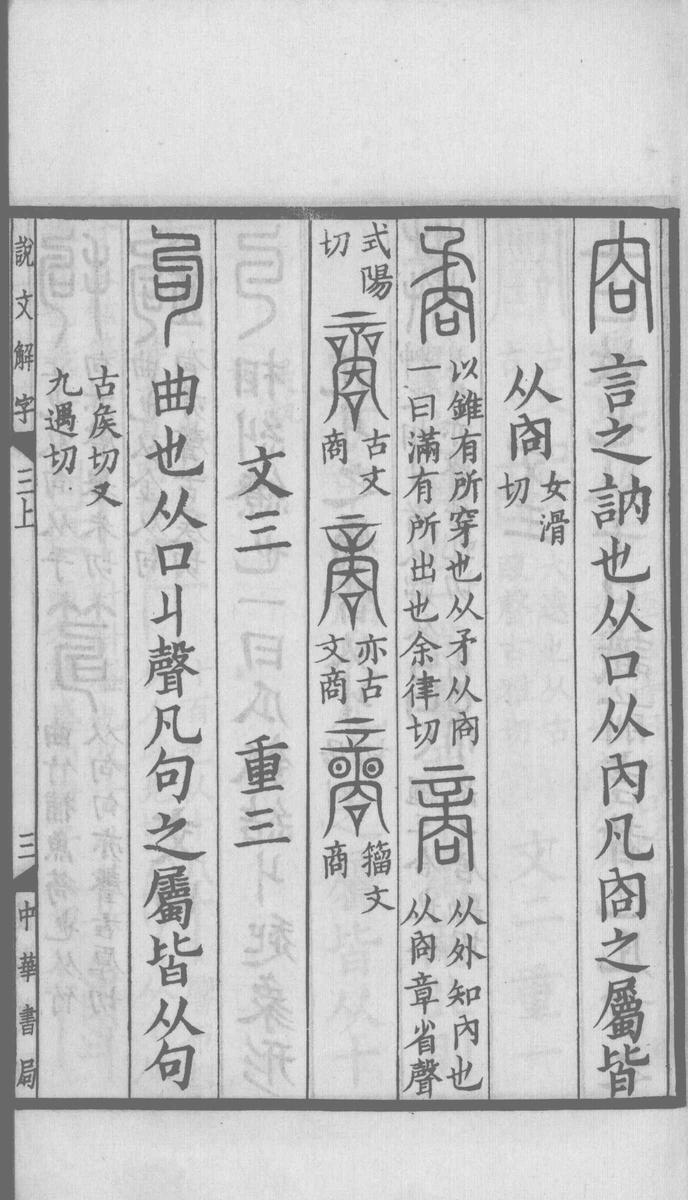 㕯 言之訥也从口从內凡㕯之屬皆
从㕯 女滑切
矞 以錐有所穿也从矛从㕯一曰滿有所出也余律切 商 从外知內也从㕯章省聲
式陽切 古文商 亦古文商 籀文商
文三 重三
句 曲也从口丩聲凡句之屬皆从句
古矦切又九遇切
說文解字 三上 三 中華書局